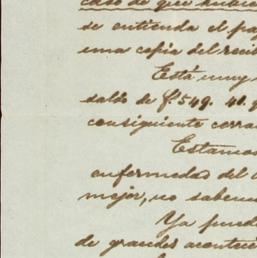 caso de que hubie
se entienda el pa
una copia del recib
Está muy
saldo de $.549.41.
consiguiente cerra
Estamos
enfermedad del
mejor, no sabemo
Ya puede
de grandes acontec